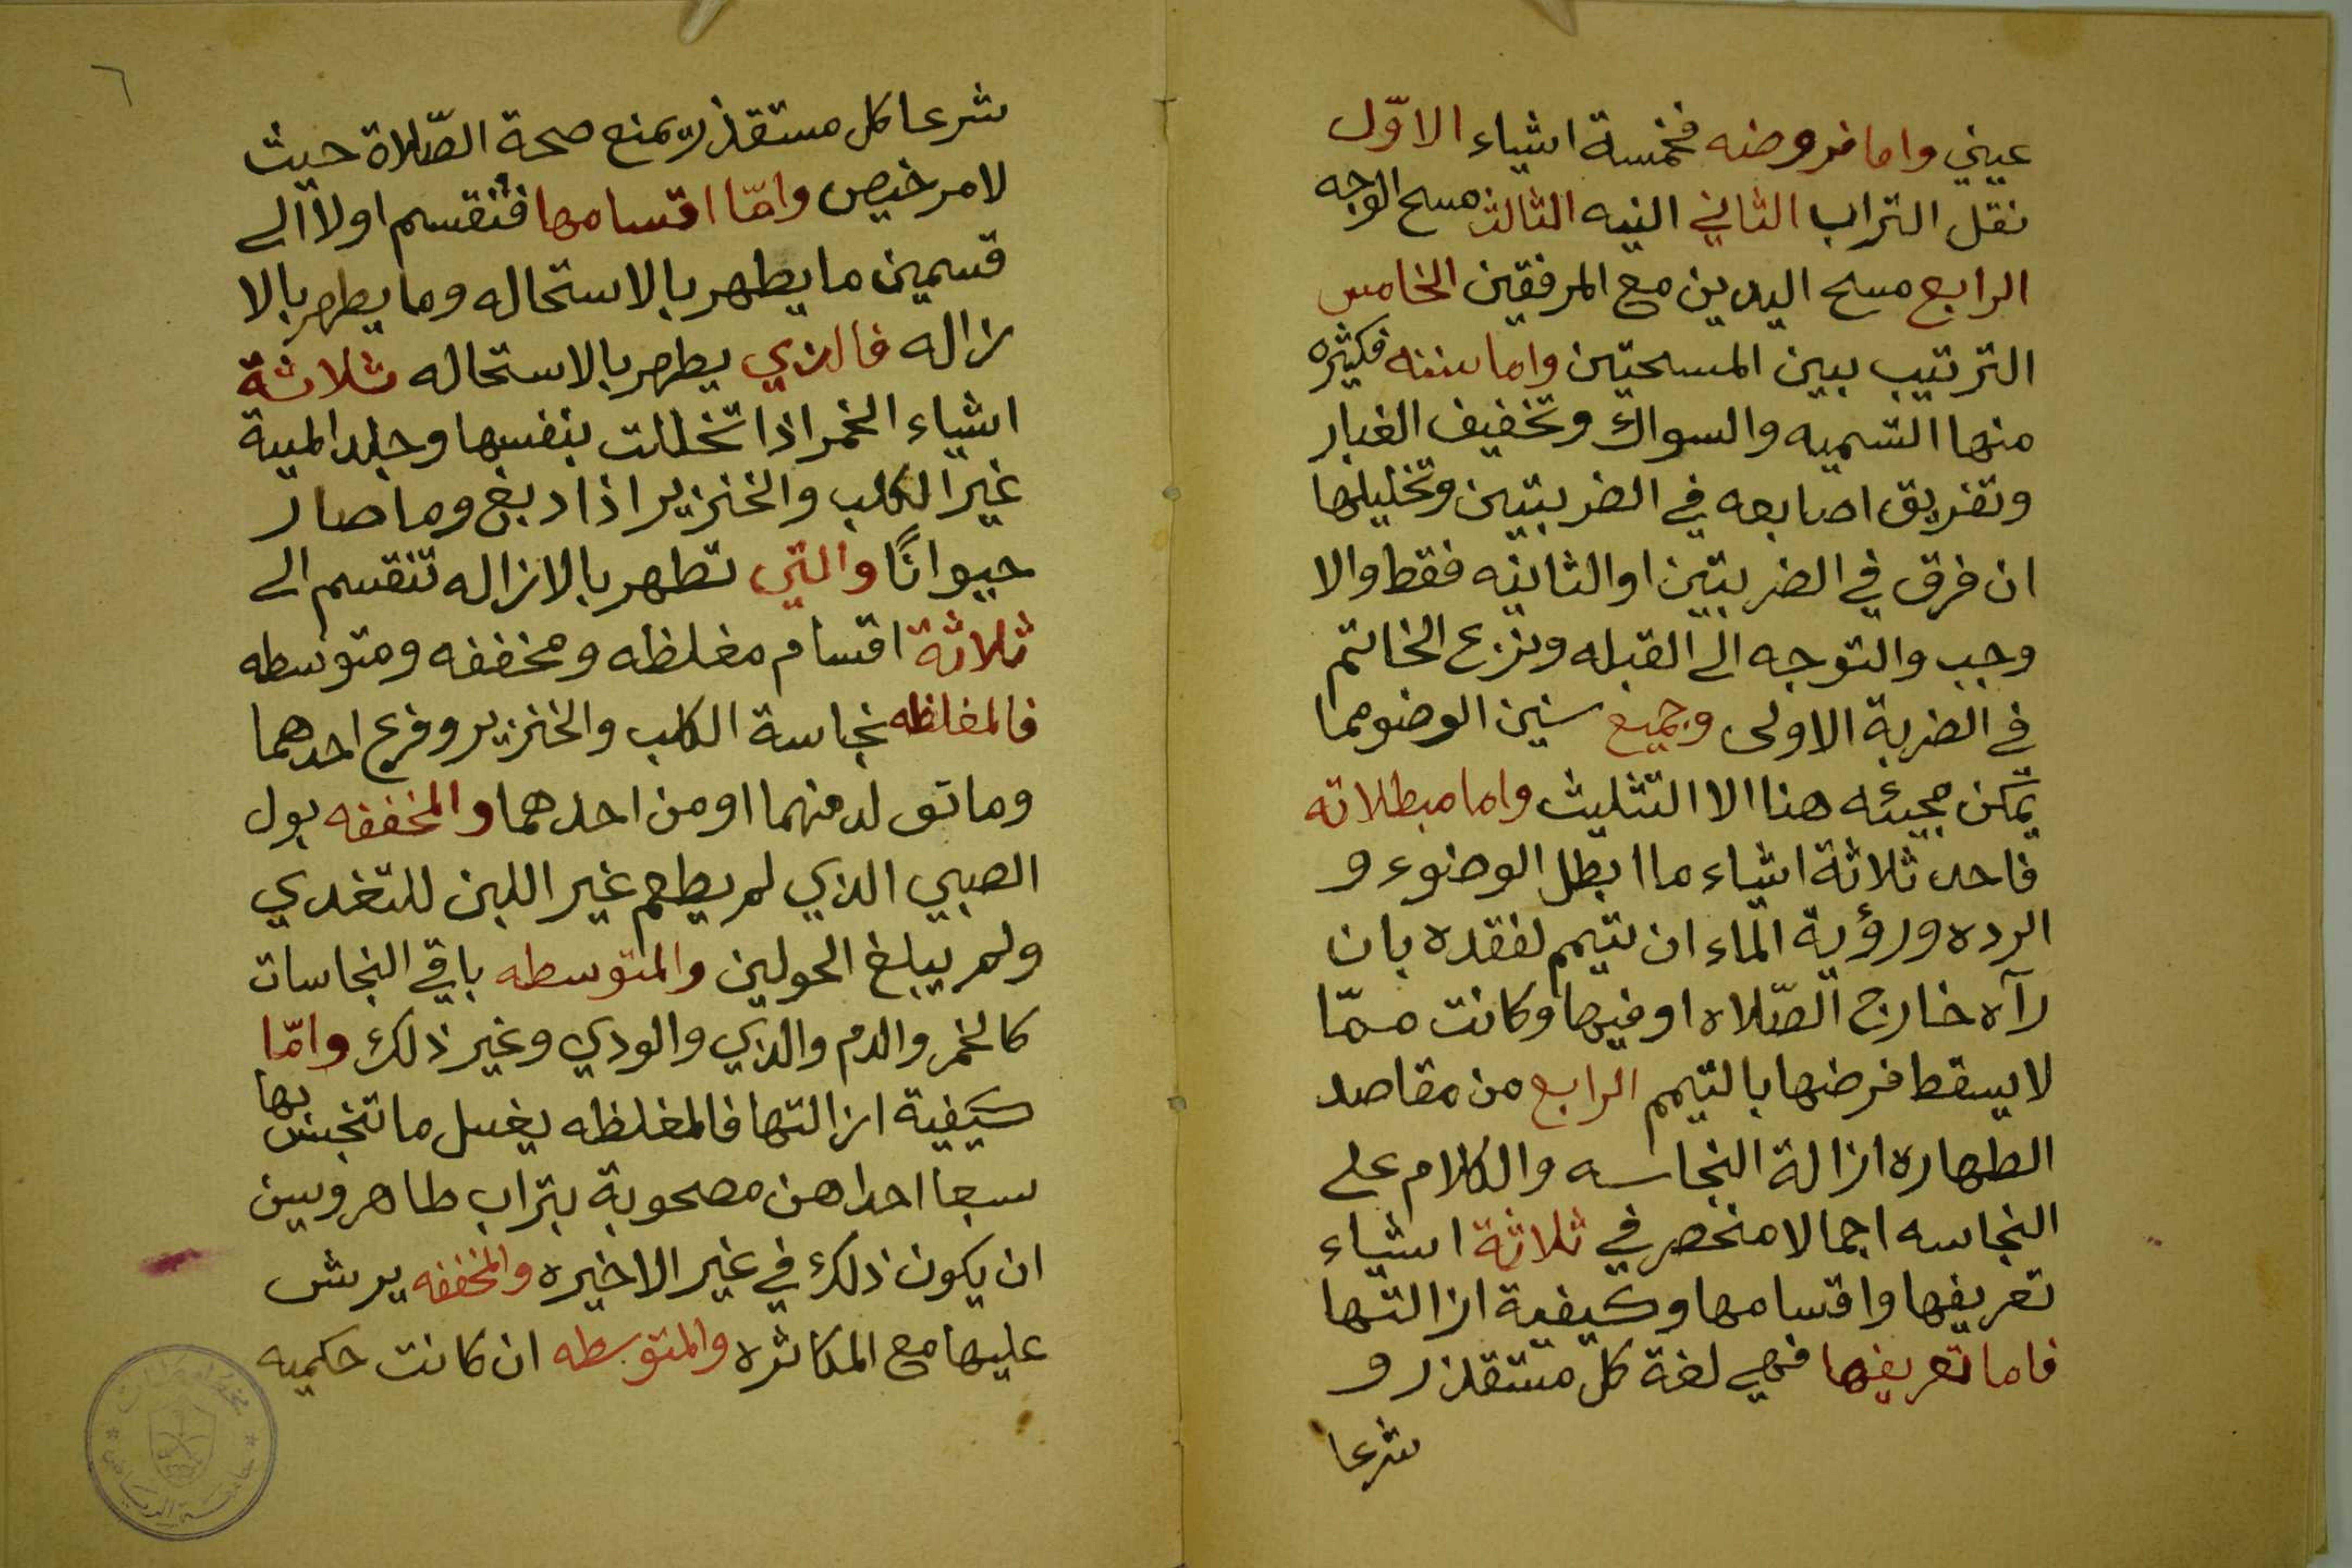 عيني واما فروضه فخمسة اشياء الاوّل
نقل التراب الثاني النيه الثالث مسح الوجه
الرابع مسح اليدين مع المرفقين الخامس
الترتيب بين المسحتين واما سننه فكثيره
منها التسميه والسواك وتخفيف الغبار
وتفريق اصابعه في الضربتين وتخليلها
ان فرق في الضربتين او الثانيه فقط والا
وجب والتوجه الى القبله ونزع الخاتم
في الضربة الاولى وجميع سنين الوضو مما
يمكن مجيئه هنا الا التثليث واما مبطلاته
فاحد ثلاثة اشياء ما ابطل الوضوء و
الرده ورؤية الماء ان تيمم لفقده بان
رآه خارج الصّلاه او فيها وكانت ممّا
لا يسقط فرضها بالتيمم الرابع من مقاصد
الطهاره ازالة النجاسه والكلام على
النجاسه اجمالا منحصر في ثلاثة اشياء
تعريفها واقسامها وكيفية ازالتها
فاما تعريفها فهي لغة كل مستقذر و
شرعا
٦
شرعا كل مستقذر يمنع صحة الصّلاة حيث
لا مرخيص وامّا اقسامها فتنقسم اولا الى
قسمين ما يطهر بالاستحاله وما يطهر بالا
زاله فالذي يطهر بالاستحاله ثلاثة
اشياء الخمر اذا تخللت بنفسها وجلد الميتة
غير الكلب والخنزير اذا دبغ وما صار
حيوانًا والتي تطهر بالازاله تنقسم الى
ثلاثة اقسام مغلظه ومخففه ومتوسطه
فالمغلظه نجاسة الكلب والخنزير وفرع احدهما
وما تولد منهما او من احدهما والمخففه بول
الصبي الذي لم يطعم غير اللبن للتغدي
ولم يبلغ الحولين والمتوسطه باقي النجاسات
كالخمر والدم والذي والودي وغير ذلك وامّا
كيفية ازالتها فالمغلظه يغسل ما تنجس بها
سبعا احداهن مصحوبة بتراب طاهر ويسن
ان يكون ذلك في غير الاخيره والمخففه يرش
عليها مع المكاثره والمتوسطه ان كانت حكميه